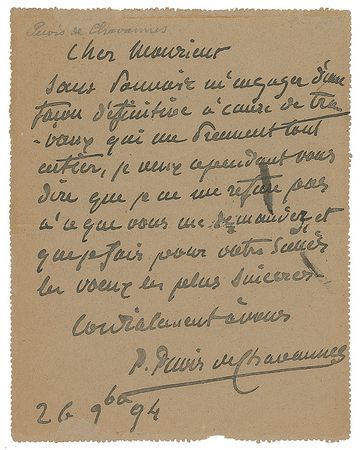 Puvis de Chavannes
Cher Monsieur
Sans pouvoir m'engager d'une
façon définitive à cause de tra
-vaux qui me prennent tout
entier, je veux cependant vous
dire que je ne me refuse pas
à ce que vous me demandez et
que je fais pour votre succès
les voeux les plus sincères
Cordialement à vous
P. Puvis de Chavannes
26 9bre 94